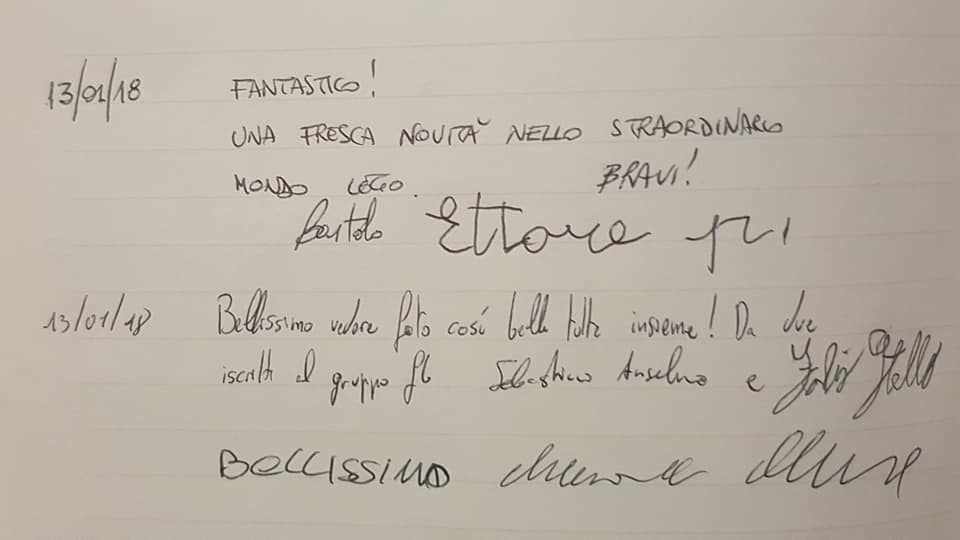 13/01/18 FANTASTICO!
UNA FRESCA NOVITÀ NELLO STRAORDINARIO
MONDO LEGO. BRAVI!
Bartolo Ettore
13/01/18 Bellissimo vedere foto così belle tutte insieme! Da due
iscritti al gruppo fb Sebastiano Anselmo e
BELLISSIMO